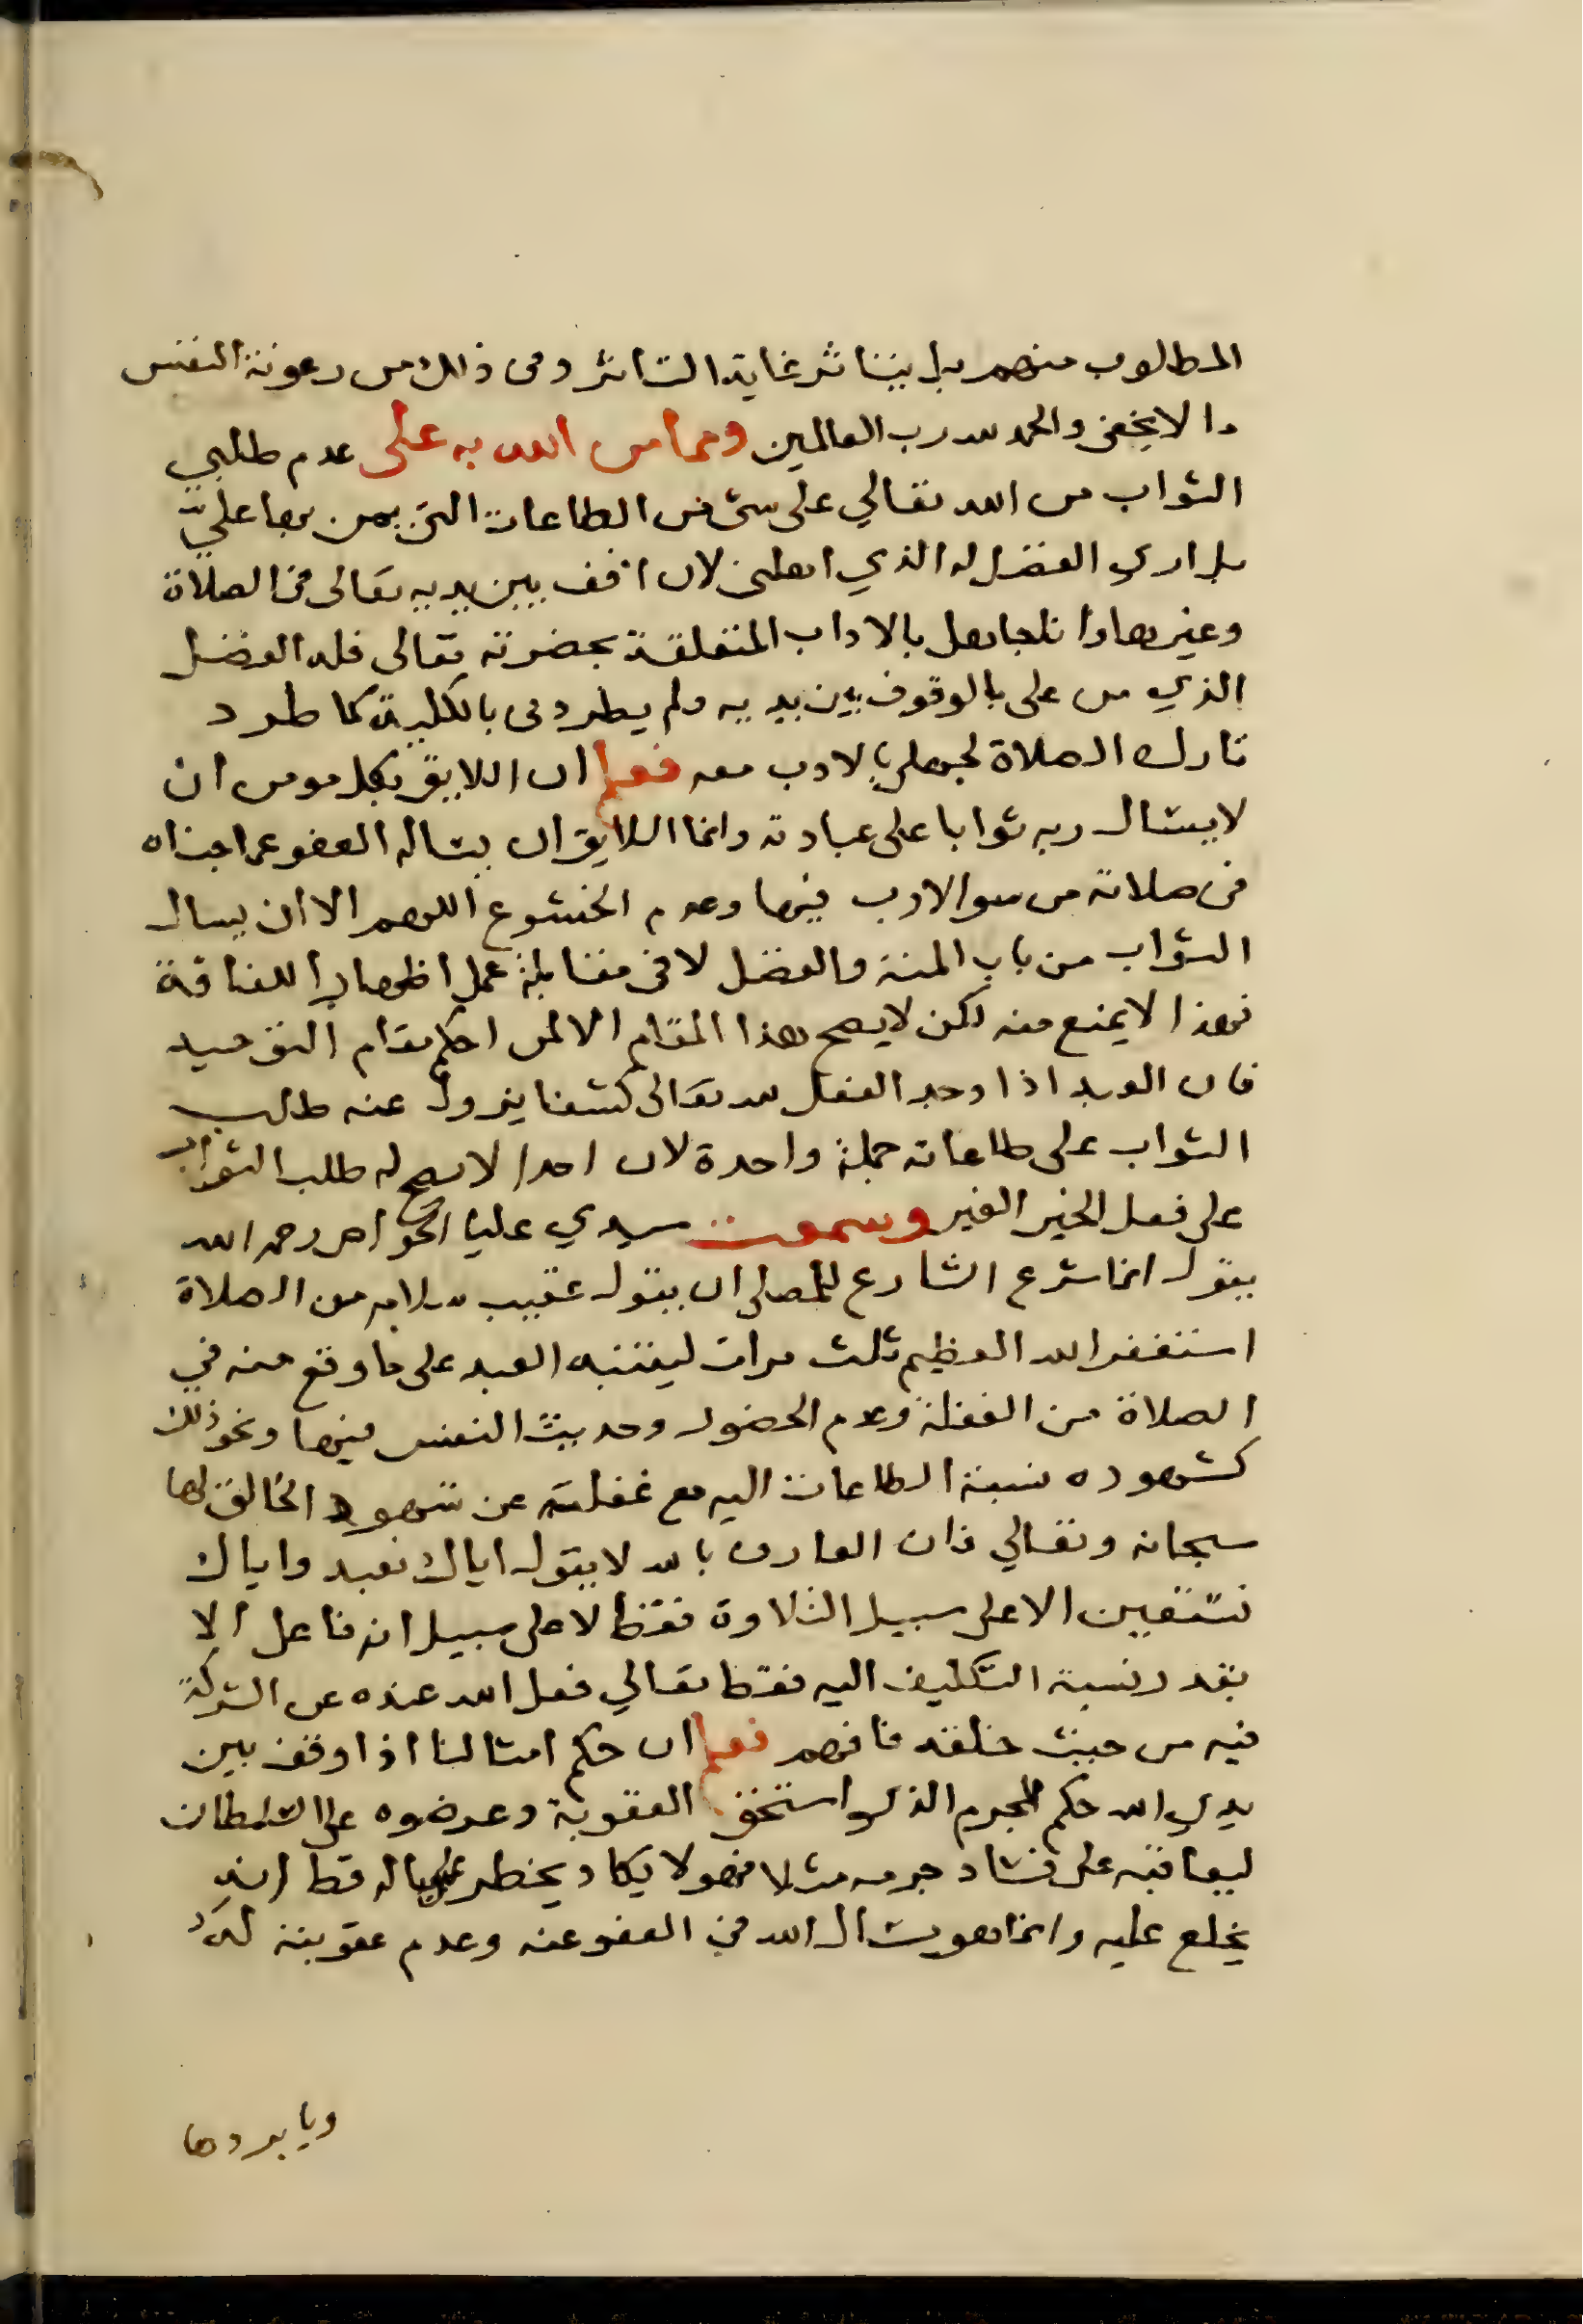 المطلوب منهم بل يتاثر غاية التاثر وفى ذلك من رعونة النفس
ما لا يخفى والحمد لله رب العالمين ومما من الله به على عدم طلبي
الثواب من الله تعالي على شئ من الطاعات التى يمن بها عليّ
بل ارى الفضل له الذي اهلنى لان اقف بين يديه تعالى فى الصلاة
وغيرها وانا جاهل بالاداب المتعلقة بحضرته تعالى فله الفضل
الذي من على بالوقوف بين يديه ولم يطردنى بالكلية كما طرد
تارك الصلاة لجهلى بالادب معه فعلم ان اللايق بكل مومن ان
لا يسال ربه ثوابا على عبادته وانما اللايق ان يساله العفو عما جناه
فى صلاته من سو الادب فيها وعدم الخشوع اللهم الا ان يسال
الثواب من باب المنة والفضل لا فى مقابلة عمل اظهارا للفاقة
فهذا لا يمنع منه لكن لا يصح هذا المقام الا لمن احكم مقام التوحيد
فان العبد اذا وحد الفعل لله تعالى كشفا يزول عنه طلب
الثواب على طاعاته جملة واحدة لان احدا لا يصح له طلب الثواب
على فعل الخير الغير وسمعت سيدي عليا الخواص رحمه الله
يقول انما شرع الشارع للمصلى ان يقول عقيب سلامه من الصلاة
استغفر الله العظيم ثلث مرات ليتنبه العبد على ما وقع منه في
الصلاة من الغفلة وعدم الحضور وحديث النفس فيها ونحو ذلك
كشهوده نسبة الطاعات اليه مع غفلته عن شهود الخالق لها
سبحانه وتعالي فان العارف بالله لا يقول اياك نعبد واياك
نستعين الا على سبيل التلاوة فقط لا على سبيل انه فاعل الا
بقدر نسبة التكليف اليه فقط تعالي فعل الله عنده عن الشركة
فيه من حيث خلقه فافهم فعلم ان حكم امثالنا اذا وقف بين
يدى الله حكم المجرم الذى استحق العقوبة وعرضوه على السلطان
ليعاقبه على فساد جرمه مثلا فهو لا يكاد يخطر على باله قط انه
يخلع عليه وانما هو يسال الله فى العفو عنه وعدم عقوبته له
ويا بردها